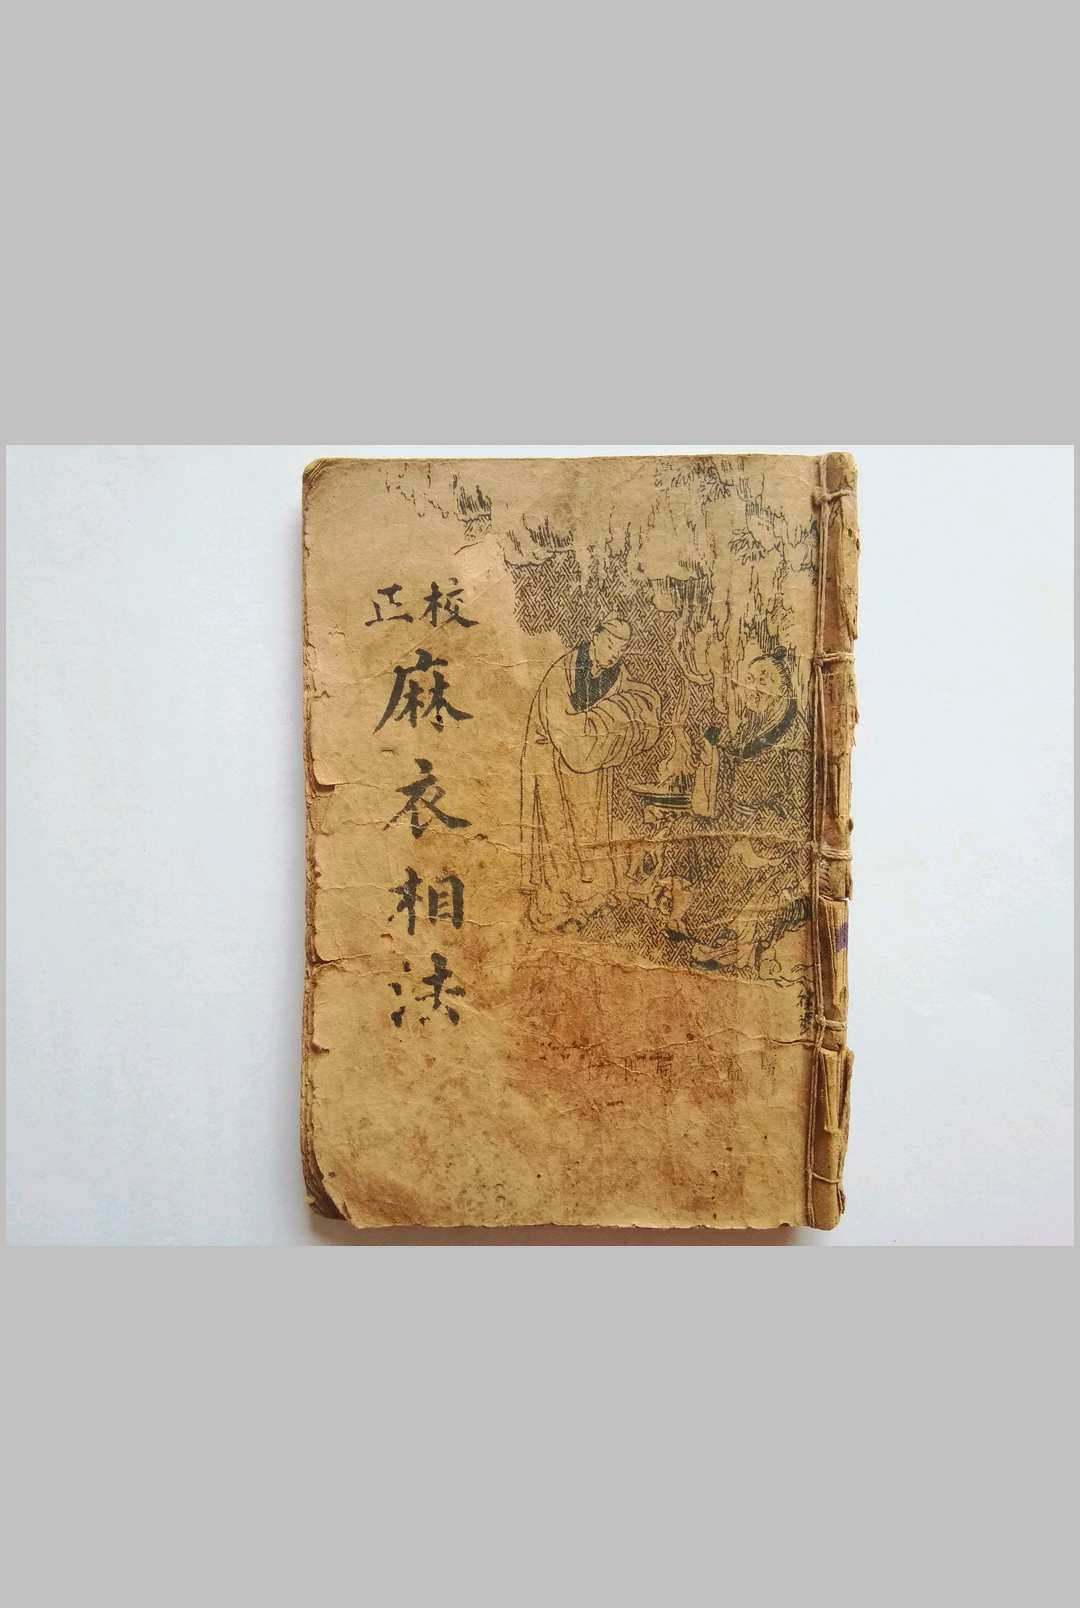 校正
麻衣相法